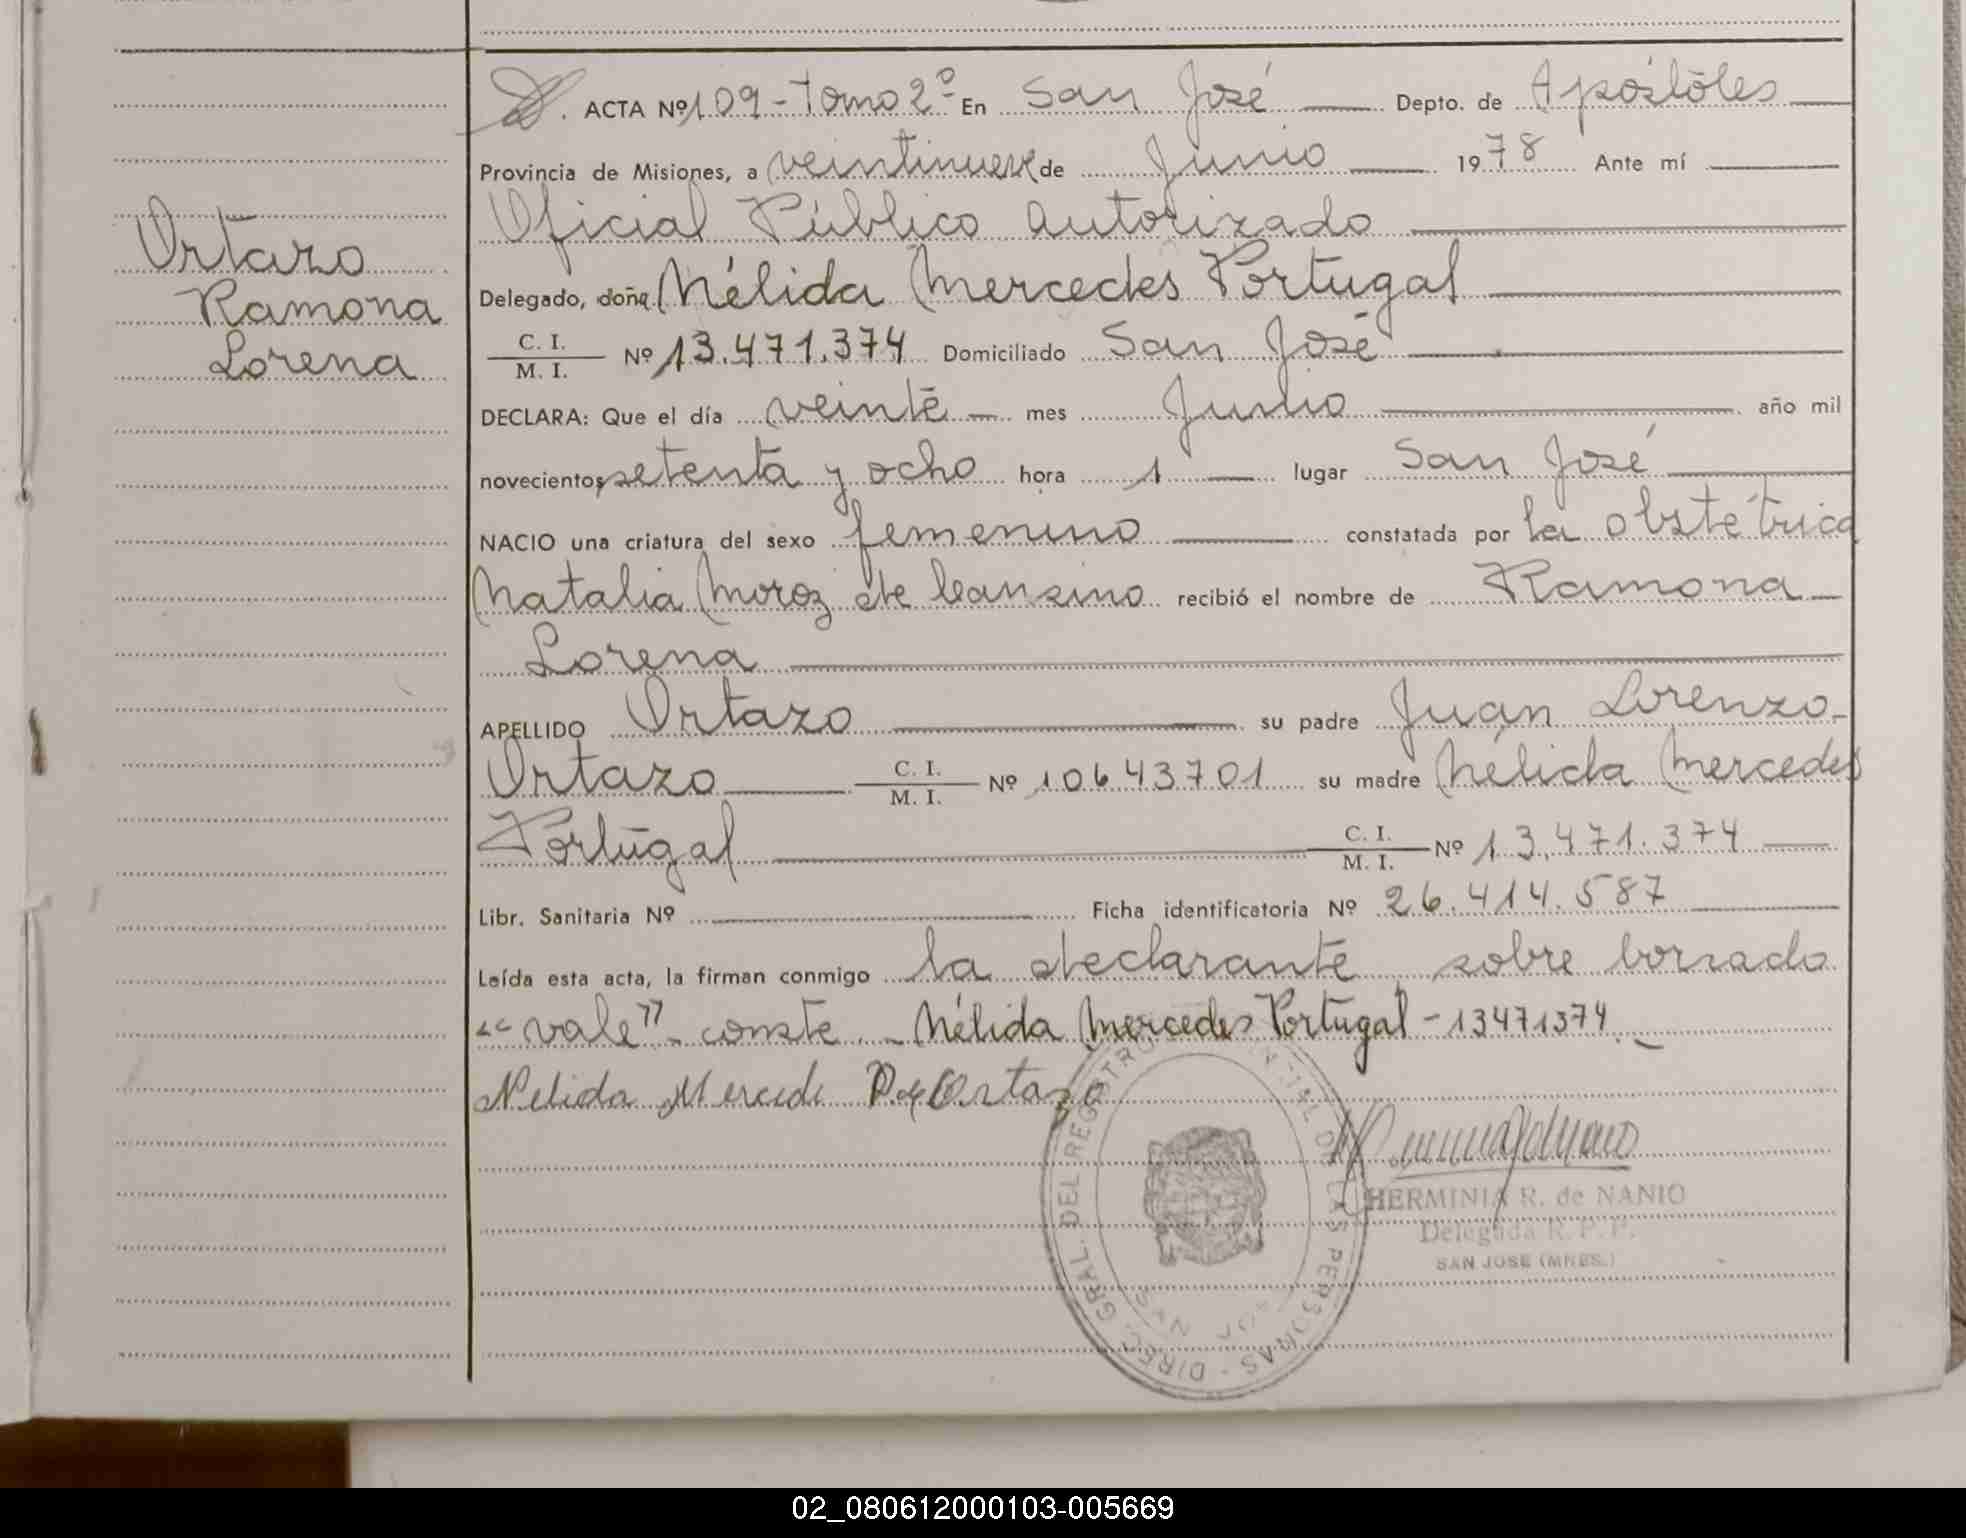 Ortazo
Ramona
Lorena
ACTA Nº 109 - Tomo 2º - En San José Depto. de Apóstoles
Provincia de Misiones, a veintinueve de Junio 1978 Ante mí
Oficial Público autorizado
Delegado, doña Nélida Mercedes Portugal
C. I.
M. I. Nº 13.471.374 Domiciliado San José
DECLARA: Que el día veinte mes Junio año mil
novecientos setenta y ocho hora 1 lugar San José
NACIO una criatura del sexo femenino constatada por la obstétrica
Natalia Moroz de recibió el nombre de Ramona
Lorena
APELLIDO Ortazo su padre Juan Lorenzo
Ortazo C. I. M. I. Nº 10643701 su madre Nélida Mercedes
Portugal C. I. M. I. Nº 13.471.374
Libr. Sanitaria Nº Ficha identificatoria Nº 26.414.587
Leída esta acta, la firman conmigo la declarante sobre borrado
"vale" - conste. - Nélida Mercedes Portugal - 13471374. -
Nelida Mercede P de Ortazo
DIREC. GRAL. DEL REGISTRO PROVINCIAL DE LAS PERSONAS
HERMINIA R. de NANIO
Delegada R. P. P.
SAN JOSE (MNES.)
02_080612000103-005669